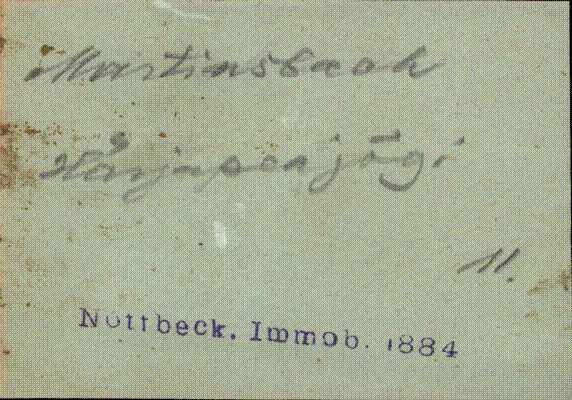 Martinsbach
Härjapea jõgi
11.
Nottbeck. Immob. 1884